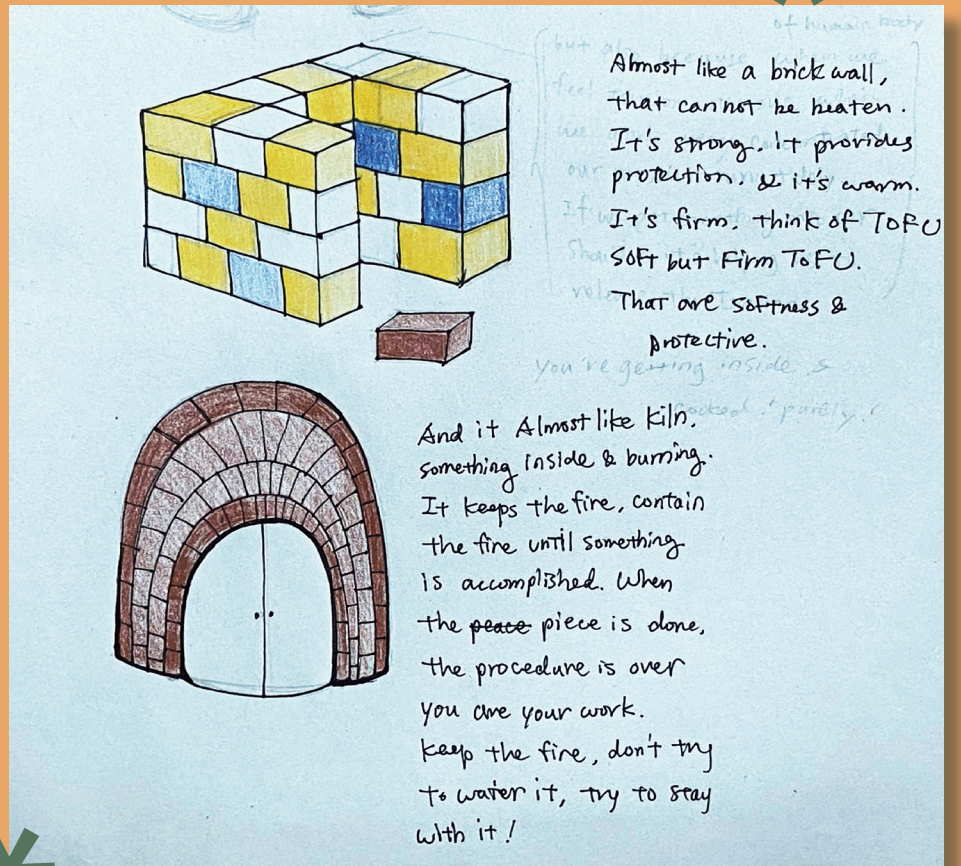 of human body
but also because when we
feel
our
If w
Sha
Almost like a brick wall,
that cannot be beaten.
It's strong. it provides
protection. & it's warm.
It's firm. think of TOFU
soft but Firm TOFU.
That are softness &
protective.
you're getting inside &
locked. purely.
And it Almost like kiln.
something inside & burning.
It keeps the fire, contain
the fire until something
is accomplished. When
the peace piece is done,
the procedure is over
you are your work.
keep the fire, don't try
to water it, try to stay
with it!